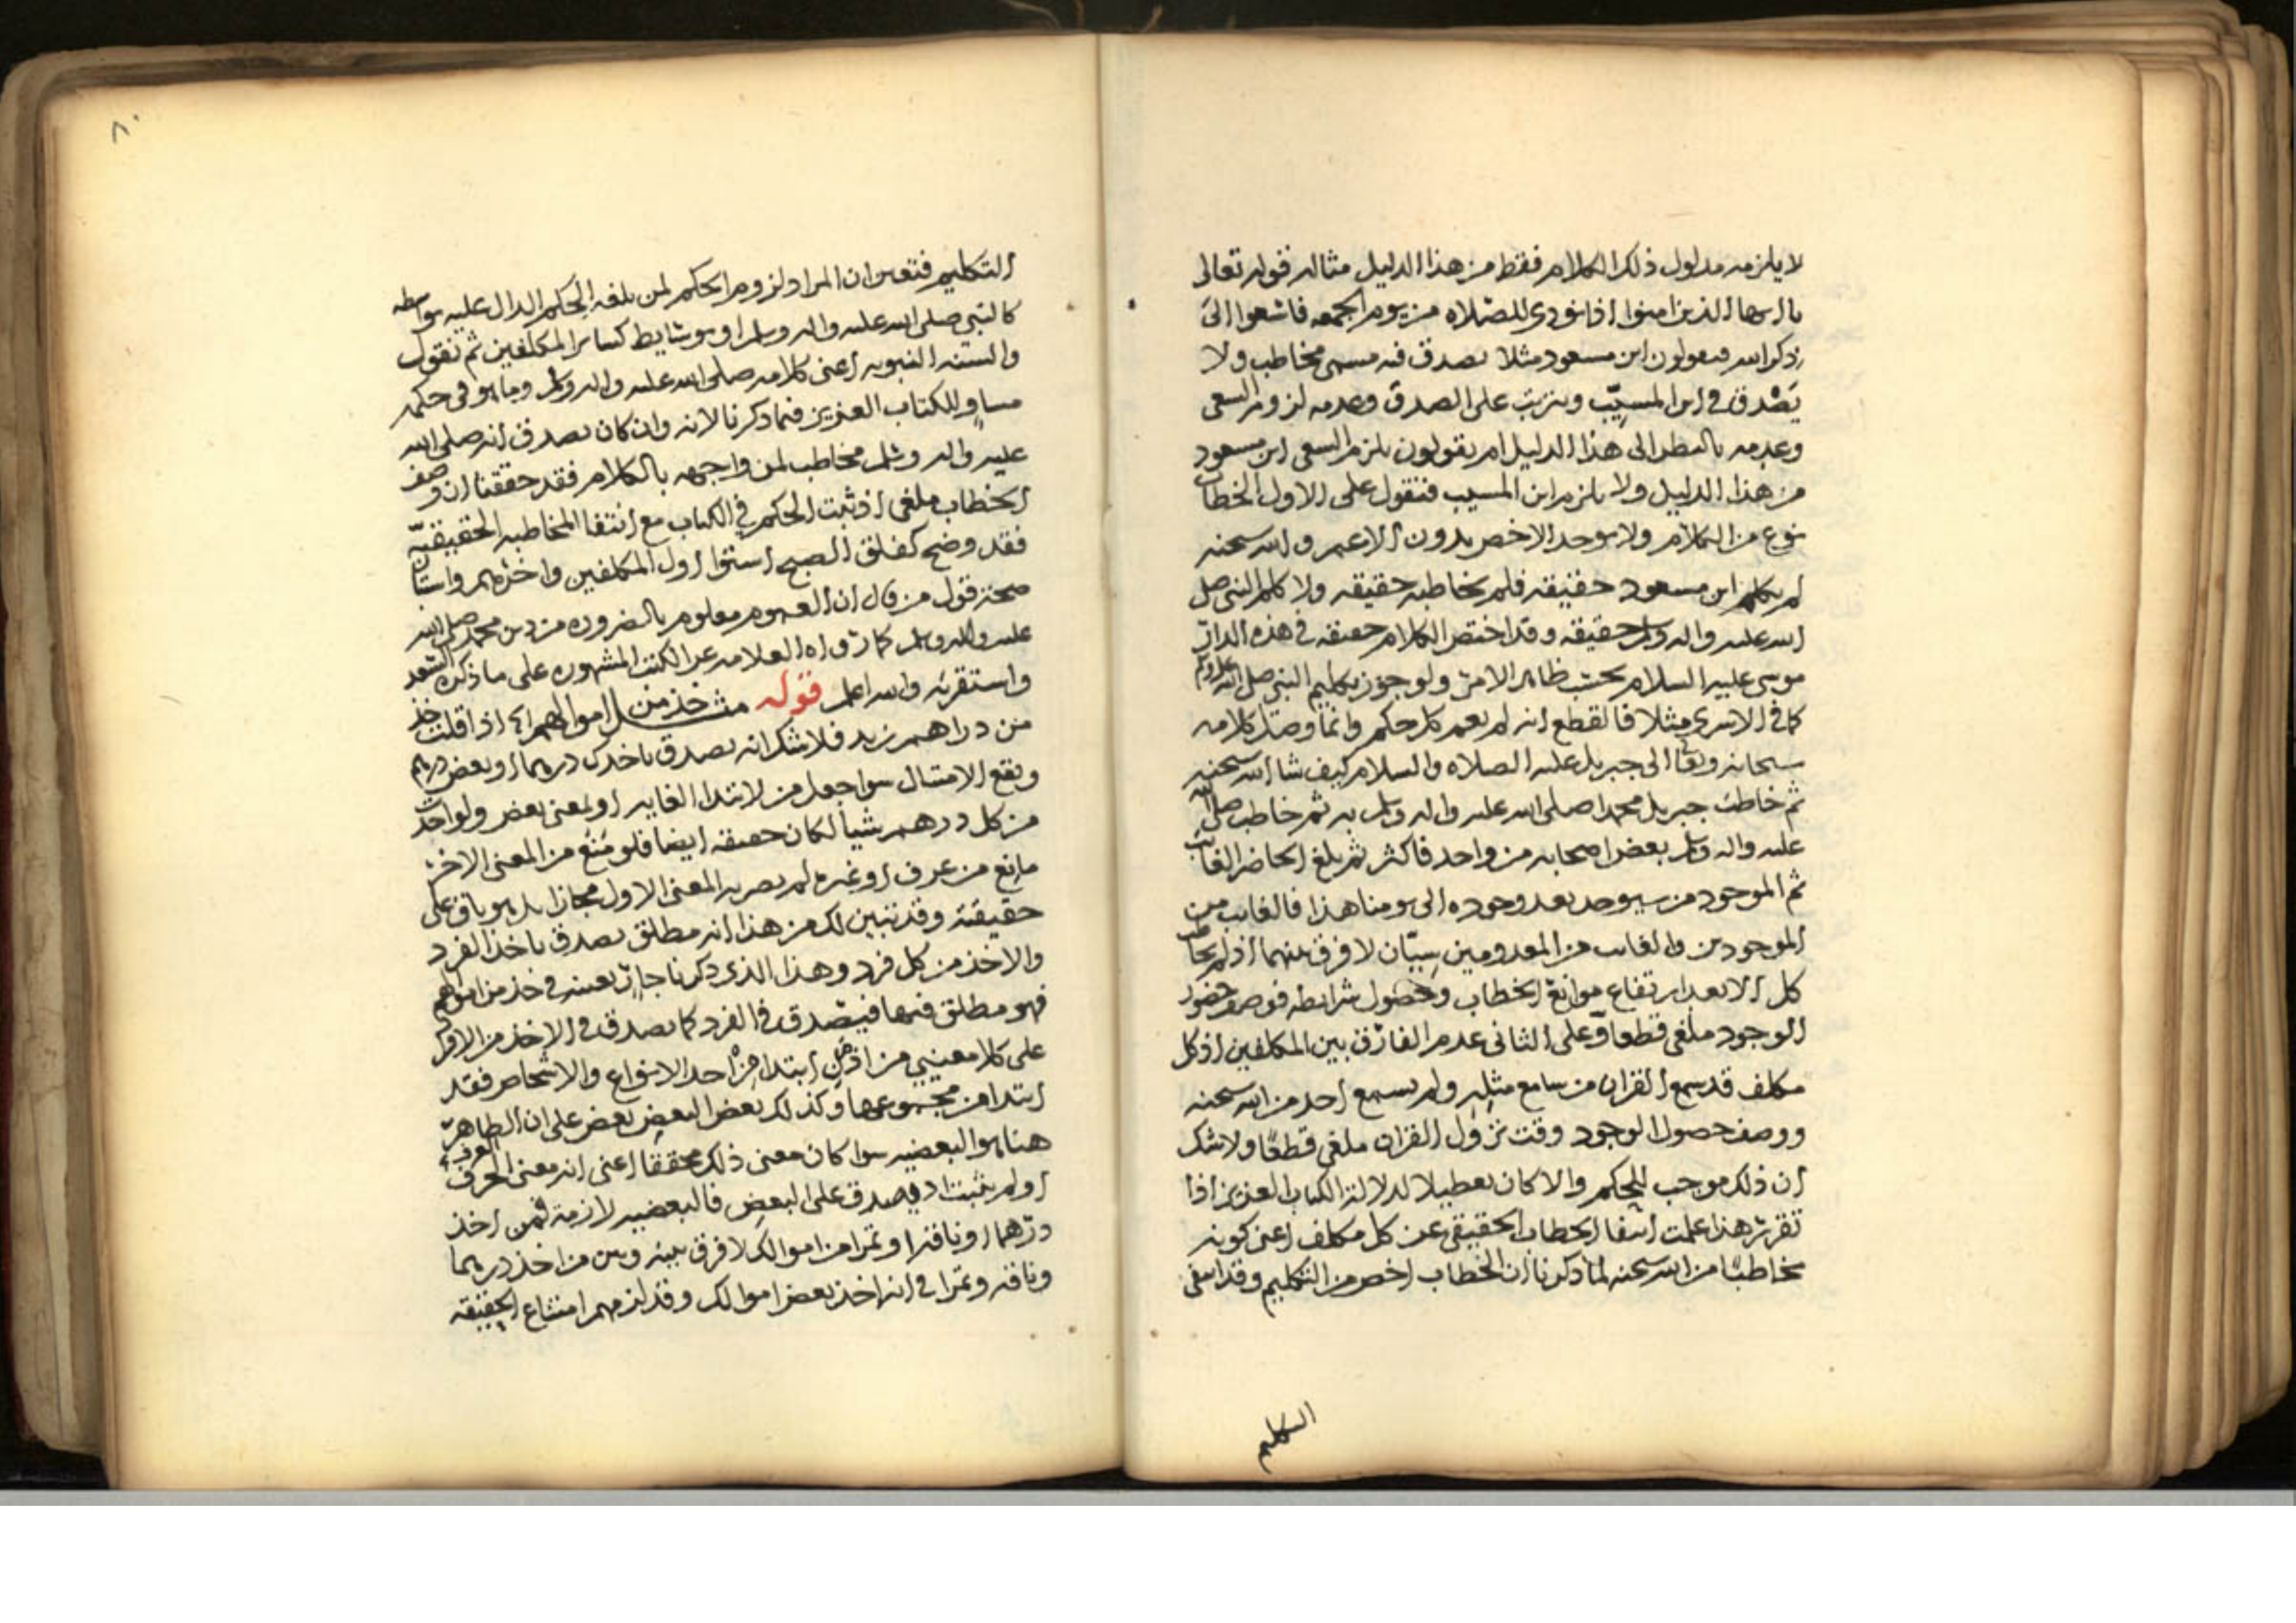 لا يلزمه مدلول ذلك الكلام فقط من هذا الدليل مثاله قوله تعالى
يا ايها الذين امنوا اذا نودي للصلاه من يوم الجمعه فاسعوا الى
ذكر الله فيقولون ابن مسعود مثلا يصدق فيه مسمى مخاطب ولا
يصدق في ابن المسيّب ويترتب على الصدق وعدمه لزوم السعي
وعدمه بالنظر الى هذا الدليل ام يقولون يلزم السعي ابن مسعود
من هذا الدليل ولا يلزم ابن المسيب فنقول على الاول الخطاب
نوع من الكلام ولا يوجد الاخص بدون الاعم والله سبحنه
لم يكلم ابن مسعود حقيقه فلم يخاطبه حقيقه ولا كلم النبي صلى
الله عليه واله وسلم حقيقه وقد اختص الكلام حقيقه في هذه الدار
موسى عليه السلام بحسب ظاهر الامر ولو جوز تكليم النبي صلى الله عليه وسلم
كما في الاسرى مثلا فالقطع انه لم يعم كل حكم وانما وصل كلامه
سبحانه وتعا الى جبريل عليه الصلاه والسلام كيف شا الله سبحنه
ثم خاطب جبريل محمدا صلى الله عليه واله وسلم به ثم خاطب صلى الله
عليه واله وسلم بعض اصحابه من واحد فاكثر ثم بلغ الحاضر الغائب
ثم الموجود من سيوجد بعد وجوده الى يومنا هذا فالغايب من
الموجودين والغايب من المعدومين سيّان لا فرق بينهما اذ لم يخاطب
كل الا بعد ارتفاع موانع الخطاب وحصول شرايطه فوصف حضور
الوجود ملغى قطعا وعلى الثاني عدم الفارق بين المكلفين اذ كل
مكلف قد سمع القران من سامع مثله ولم يسمع احد من الله سبحنه
ووصف حصول الوجود وقت نزول القران ملغى قطعًا ولا شك
ان ذلك موجب للحكم والا كان تعطيلا لدلالة الكتاب العزيز اذا
تقرر هذا علمت انتفا الخطاب الحقيقي عن كل مكلف اعني كونه
مخاطبًا من الله سبحنه لما ذكرنا ان الخطاب اخص من التكليم وقد انتفى
التكليم
٨٠
التكليم فتعين ان المراد لزوم الحكم لمن بلغه الحكم الدال عليه بواسطه
كالنبي صلى الله عليه واله وسلم او بوسايط كساير المكلفين ثم نقول
والسنه النبويه اعني كلامه صلى الله عليه واله وسلم وما هو في حكمه
مساوٍ للكتاب العزيز فيما ذكرنا لانه وان كان يصدق انه صلى الله
عليه واله وسلم مخاطب لمن واجهه بالكلام فقد حققنا ان وصف
الخطاب ملغى اذ ثبت الحكم في الكتاب مع انتفا المخاطبه الحقيقيّه
فقد وضح كفلق الصبح استوا اول المكلفين واخرهم واستبان
صحة قول من قال ان العموم معلوم بالضروره من دين محمد صلى الله
عليه واله وسلم كما رواه العلامه عن الكتب المشهوره على ما ذكره السعد
واستقربه والله اعلم قوله مثل خذ من اموالهم الخ اذا قلت خذ
من دراهم زيد فلا شك انه يصدق باخذك درهما او بعض درهم
ويقع الامتثال سوا جعل من لابتدا الغايه او لمعنى بعض ولو اخذت
من كل درهم شيأ لكان حقيقه ايضا فلو مُنع من المعنى الاخر
مانع من عرف او غيره لم يصر به المعنى الاول مجازا بل هو باق على
حقيقته وقد تبين لك من هذا انه مطلق يصدق باخذ الفرد
والاخذ من كل فرد وهذا الذي ذكرنا جارٍ بعينه في خذ من اموالهم
فهو مطلق فيها فيصدق في الفرد كما يصدق في الاخذ من الافراد
على كلا معنيي من اذ من ابتدا من احد الانواع والاشخاص فقد
ابتدا من مجموعها وكذلك بعض البعض بعض على ان الظاهر
هنا هو البعضيه سوا كان معنى ذلك محققا اعني انه معنى الحرف
او لم يثبت اذ يصدق على البعض فالبعضيه لازمة فمن اخذ
درهما او ناقة او تمرا من اموالك لا فرق بينه وبين من اخذ درهما
وناقه وتمرا في انه اخذ بعض اموالك وقد لزمهم امتناع الحقيقه